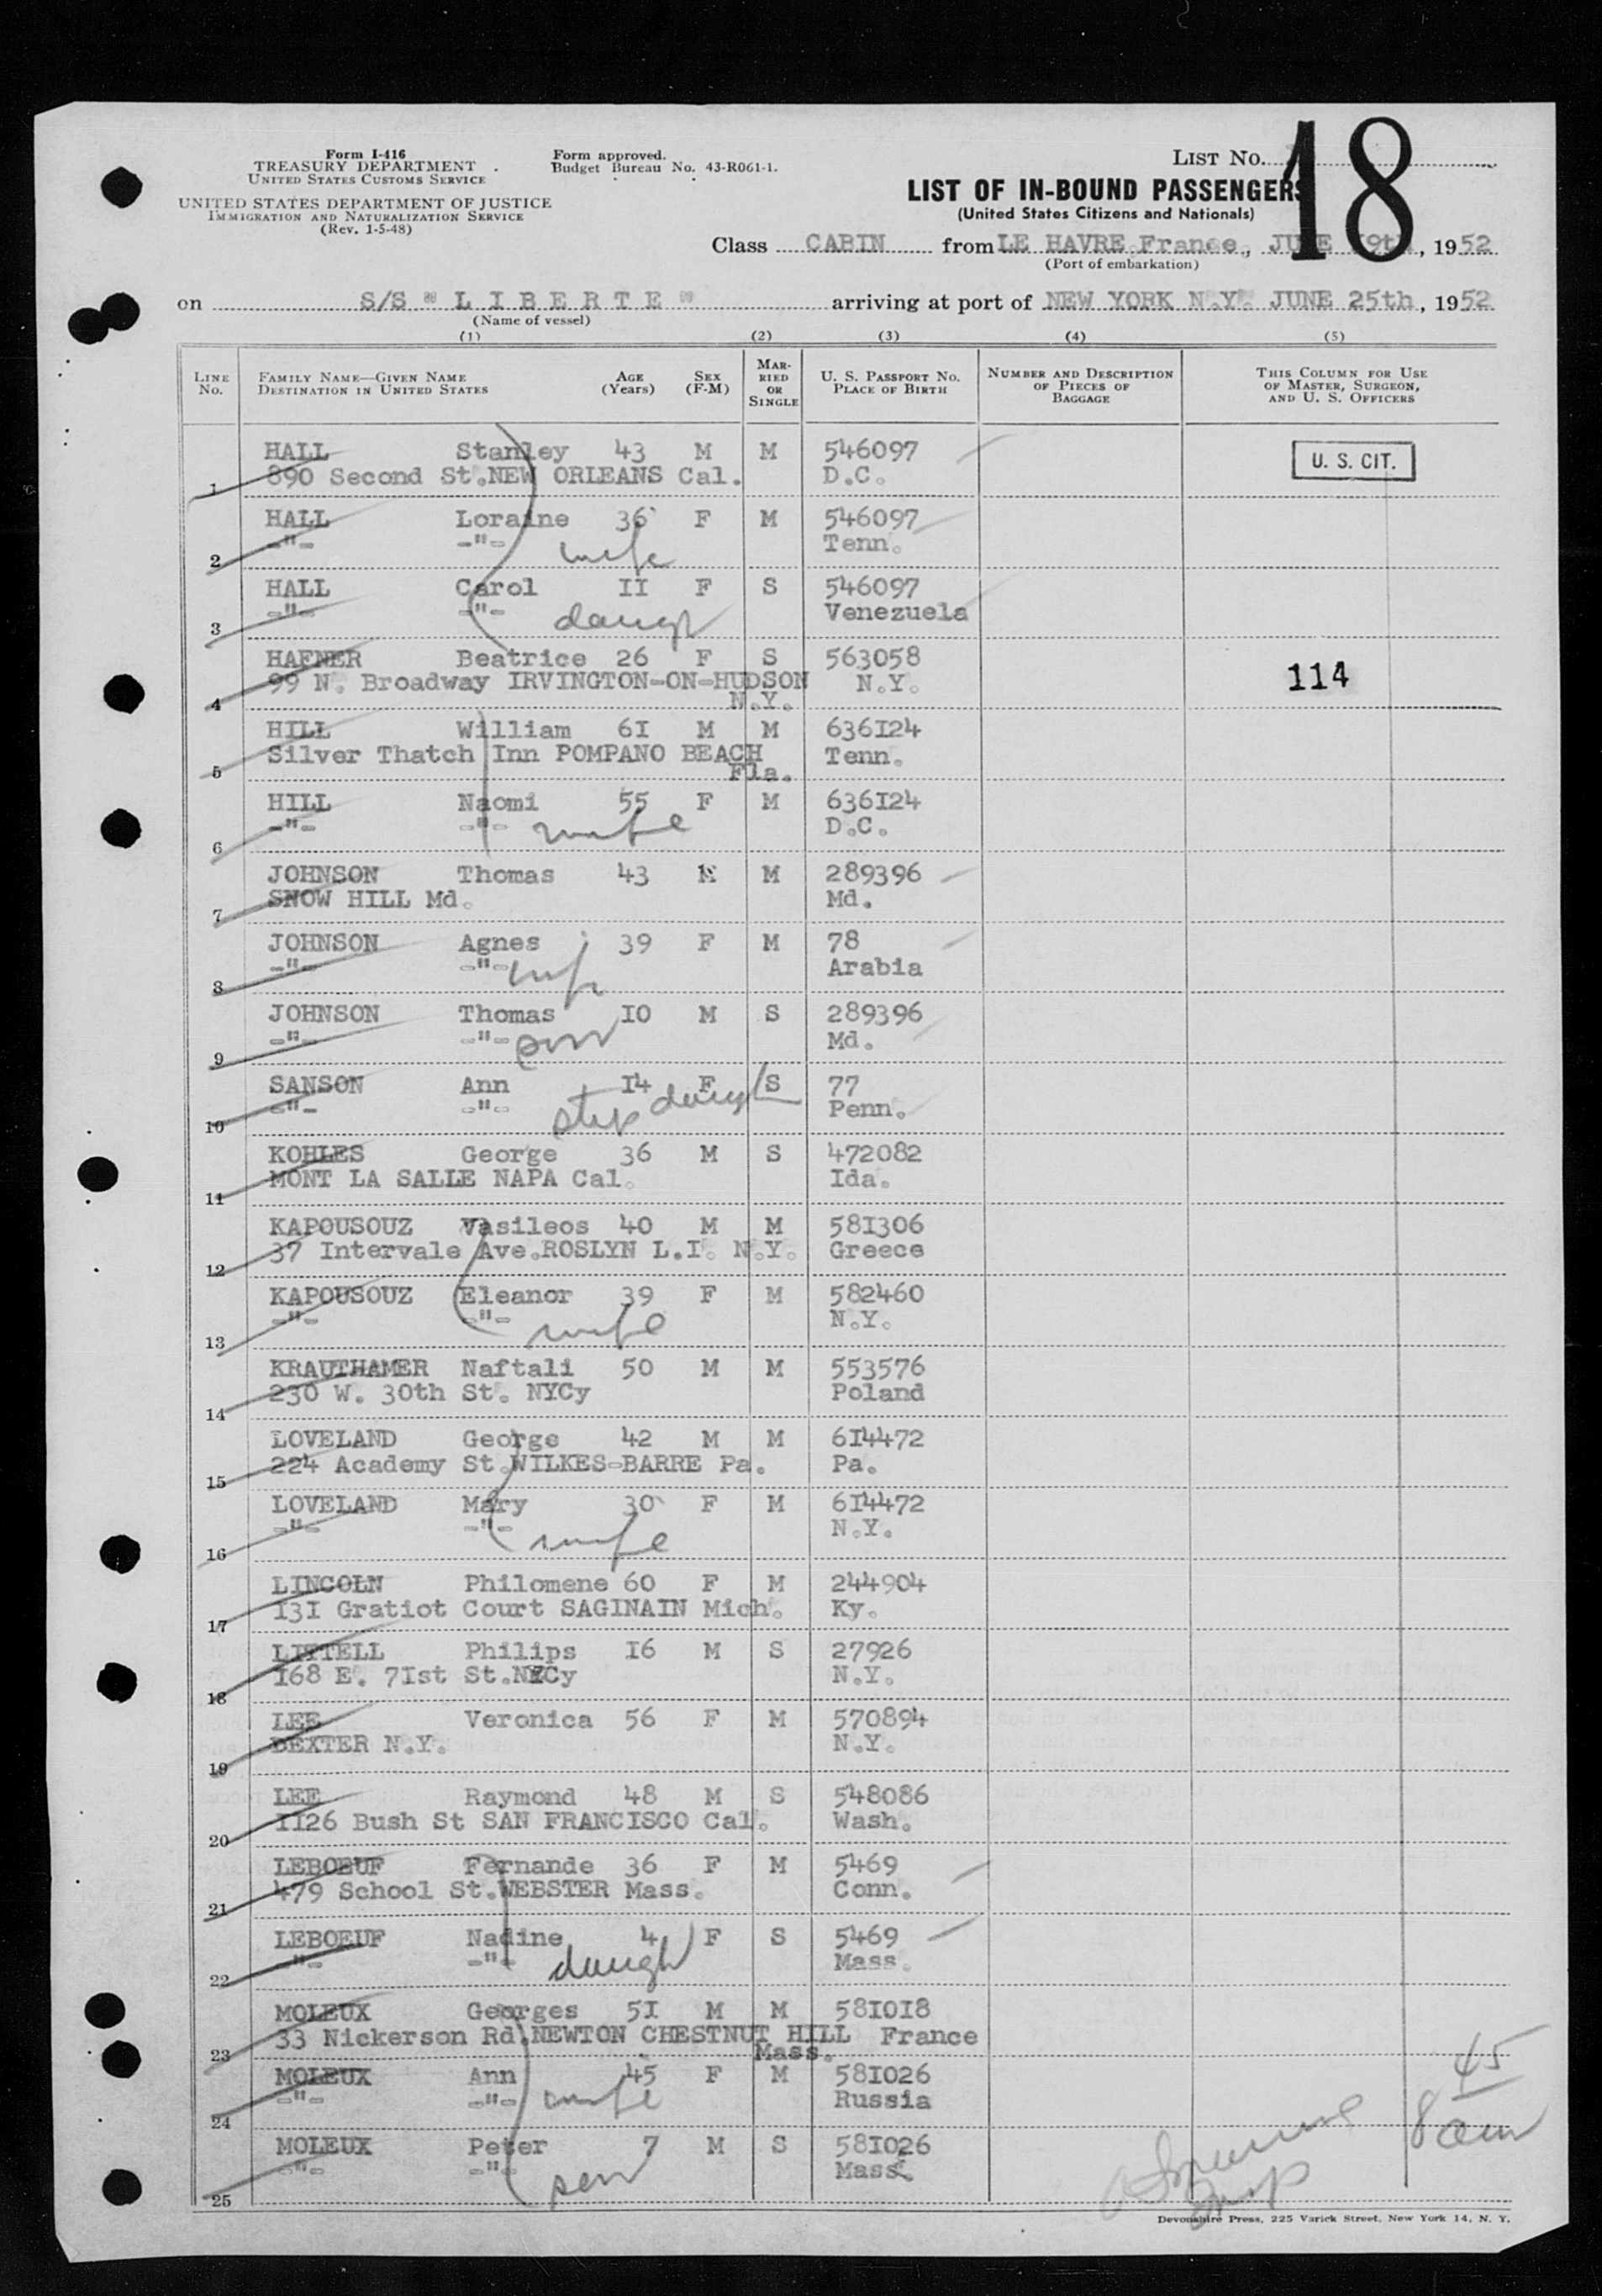 Form I-416
TREASURY DEPARTMENT
UNITED STATES CUSTOMS SERVICE
UNITED STATES DEPARTMENT OF JUSTICE
IMMIGRATION AND NATURALIZATION SERVICE
(Rev. 1-5-48)
Form approved.
Budget Bureau No. 43-R061-1.
LIST NO. 18
LIST OF IN-BOUND PASSENGERS
(United States Citizens and Nationals)
Class CABIN from LE HAVRE, France, JUNE 19th, 1952
(Port of embarkation)
on S/S " L I B E R T E " arriving at port of NEW YORK N.Y. JUNE 25th, 1952
(Name of vessel)
(1) (2) (3) (4) (5)
LINE No. FAMILY NAME—GIVEN NAME DESTINATION IN UNITED STATES AGE (Years) SEX (F-M) MARRIED OR SINGLE U. S. PASSPORT NO. PLACE OF BIRTH NUMBER AND DESCRIPTION OF PIECES OF BAGGAGE THIS COLUMN FOR USE OF MASTER, SURGEON, AND U. S. OFFICERS
HALL Stanley 43 M M 546097 U. S. CIT.
1 890 Second St.NEW ORLEANS Cal. D.C.
HALL Loraine 36 F M 546097
2 -"- -"- wife Tenn.
HALL Carol II F S 546097
3 -"- -"- daugh Venezuela
HAFNER Beatrice 26 F S 563058 114
4 99 N. Broadway IRVINGTON-ON-HUDSON N.Y. N.Y.
HILL William 6I M M 636I24
5 Silver Thatch Inn POMPANO BEACH Fla. Tenn.
HILL Naomi 55 F M 636I24
6 -"- -"- wife D.C.
JOHNSON Thomas 43 M M 289396
7 SNOW HILL Md. Md.
JOHNSON Agnes 39 F M 78
8 -"- -"- wife Arabia
JOHNSON Thomas IO M S 289396
9 -"- -"- son Md.
SANSON Ann I4 F S 77
10 -"- -"- step daugh Penn.
KOHLES George 36 M S 472082
11 MONT LA SALLE NAPA Cal. Ida.
KAPOUSOUZ Vasileos 40 M M 58I306
12 37 Intervale Ave.ROSLYN L.I. N.Y. Greece
KAPOUSOUZ Eleanor 39 F M 582460
13 -"- -"- wife N.Y.
KRAUTHAMER Naftali 50 M M 553576
14 230 W. 30th St. NYCy Poland
LOVELAND George 42 M M 6I4472
15 224 Academy St.WILKES-BARRE Pa. Pa.
LOVELAND Mary 30 F M 6I4472
16 -"- -"- wife N.Y.
LINCOLN Philomene 60 F M 244904
17 I3I Gratiot Court SAGINAIN Mich. Ky.
LITTELL Philips I6 M S 27926
18 I68 E. 7Ist St.NYCy N.Y.
LEE Veronica 56 F M 570894
19 DEXTER N.Y. N.Y.
LEE Raymond 48 M S 548086
20 II26 Bush St SAN FRANCISCO Cal. Wash.
LEBOEUF Fernande 36 F M 5469
21 479 School St.WEBSTER Mass. Conn.
LEBOEUF Nadine 4 F S 5469
22 -"- -"- daugh Mass.
MOLEUX Georges 5I M M 58I0I8
23 33 Nickerson Rd.NEWTON CHESTNUT HILL Mass. France
MOLEUX Ann 45 F M 58I026
24 -"- -"- wife Russia
MOLEUX Peter 7 M S 58I026
25 -"- -"- son Mass.
8 45 am
Insp
Devonshire Press, 225 Varick Street, New York 14, N. Y.